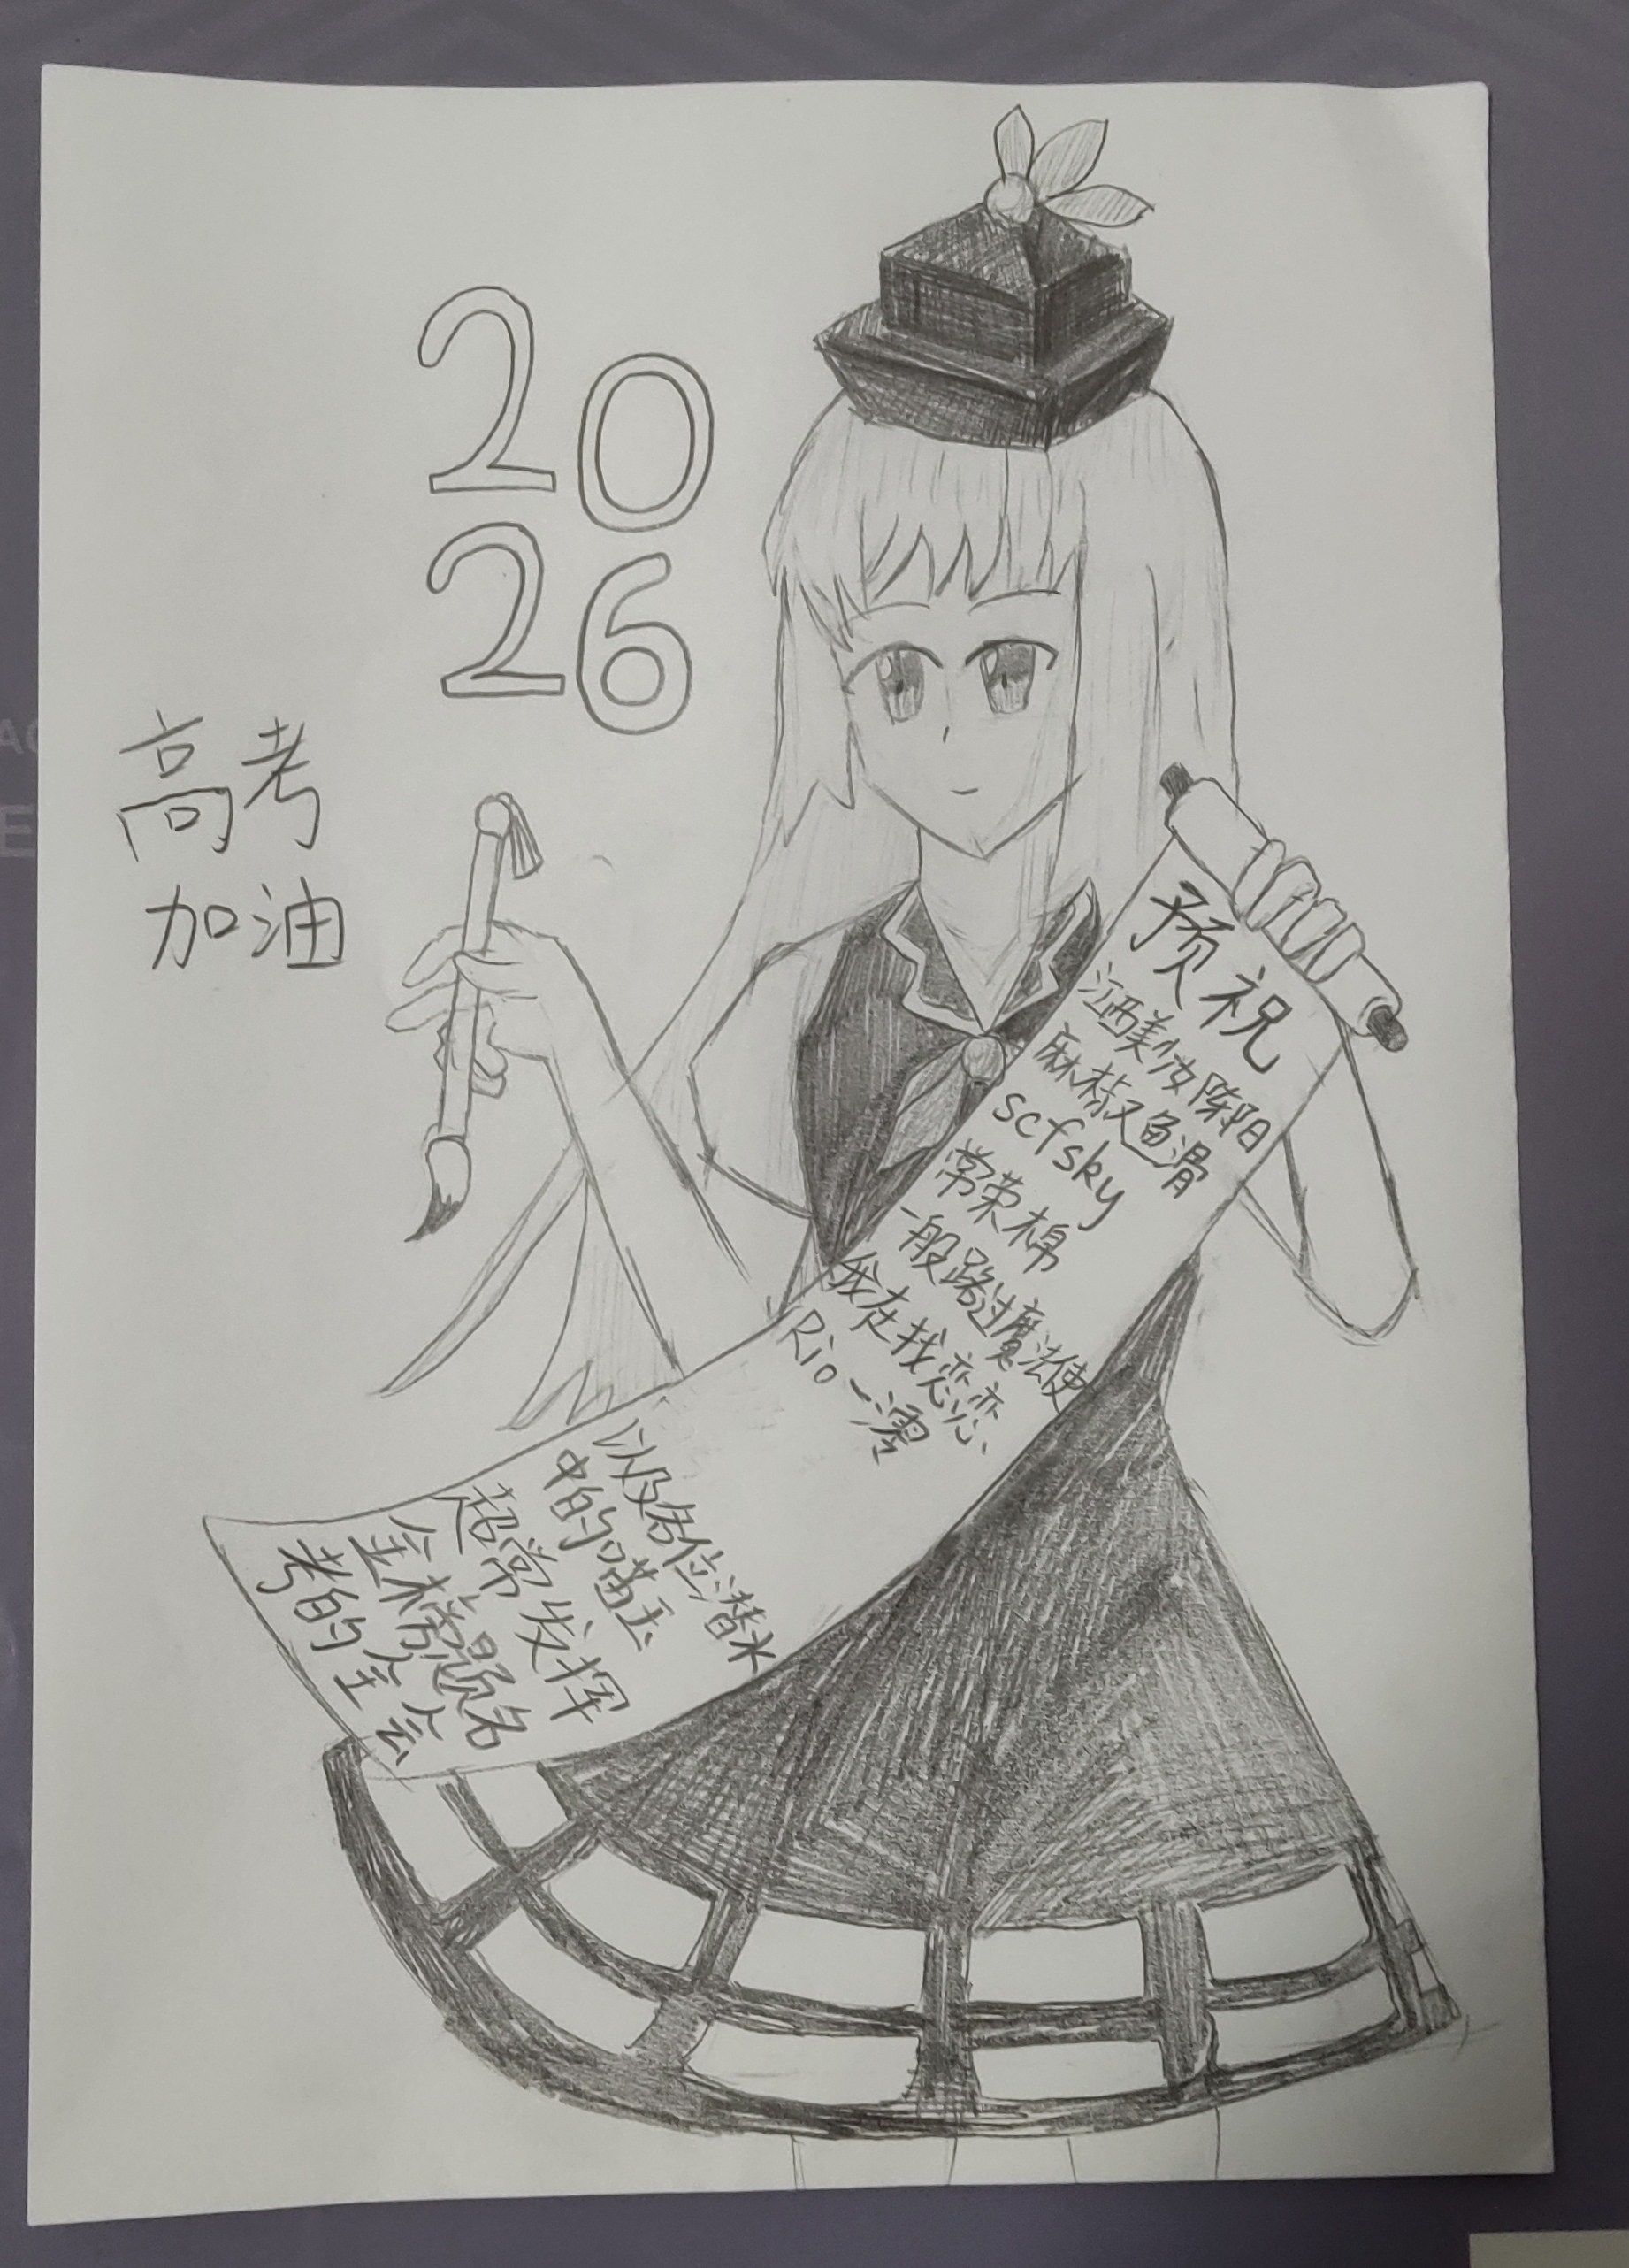 2026
高考
加油
预祝
江西美少女陈阳
麻椒鱼滑
scfsky
常荣棉
一般路过魔法使
我在找恋恋
Rio一澪
以及各位潜水
中的喵玉
超常发挥
金榜题名
考的全会